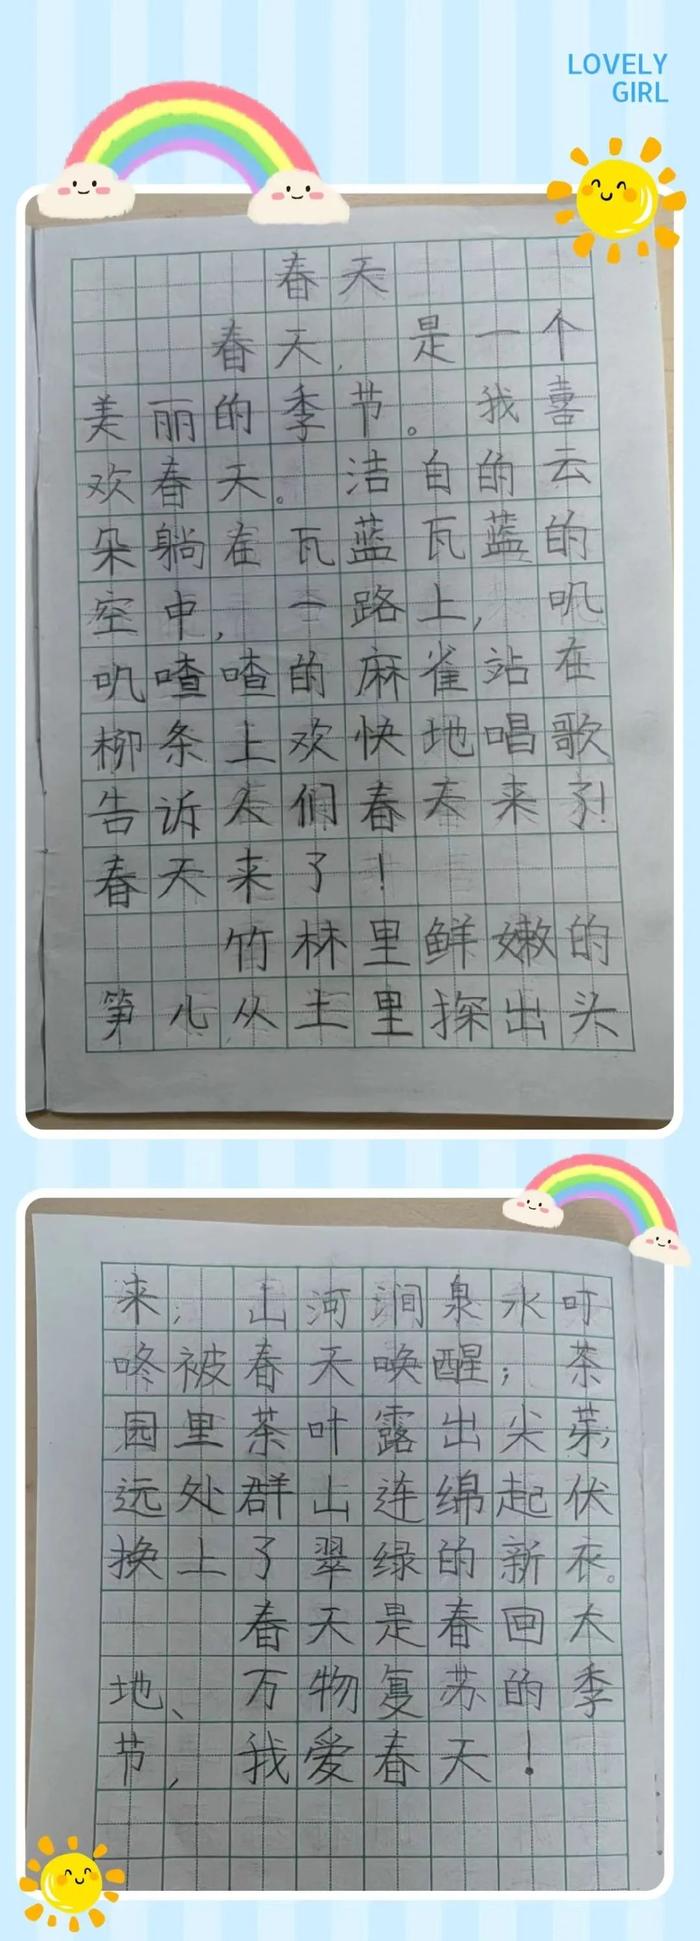 LOVELY
GIRL
春天
春天，是一个
美丽的季节。我喜
欢春天。洁白的云
朵躺在瓦蓝瓦蓝的
空中，一路上，叽
叽喳喳的麻雀站在
柳条上欢快地唱歌
告诉人们春天来了！
春天来了！
竹林里鲜嫩的
笋儿从土里探出头
来；山河涧泉水叮
咚被春天唤醒；茶
园里茶叶露出尖芽；
远处群山连绵起伏
换上了翠绿的新衣。
春天是春回大
地、万物复苏的季
节，我爱春天！